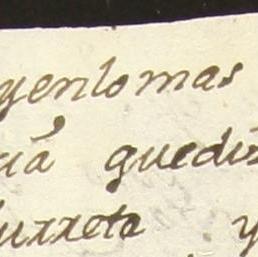 yenlomas
cia quedis
urreta y